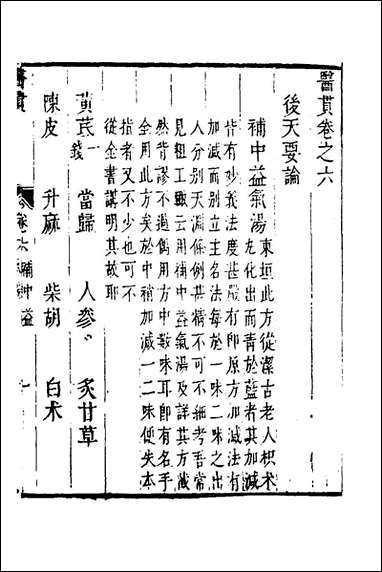 醫貫卷之六
後天要論
補中益氣湯
東垣此方從潔古老人枳术
丸化出而青於藍者其加減
皆有妙義法度甚嚴有即原方加減法有
加減而別立主名法每於一味二味之出
人分別天淵條例甚精不可不細考吾常
見粗工輒云用補中益氣湯及詳其方截
然背謬不過偶用方中數味耳即有名手
全用此方矣於中稍加減一二味便失本
指者又不少也可不
從全書講明其故耶
黃芪一錢 當歸 人參 炙甘草
陳皮 升麻 柴胡 白术
醫貫 卷六 補中益 一